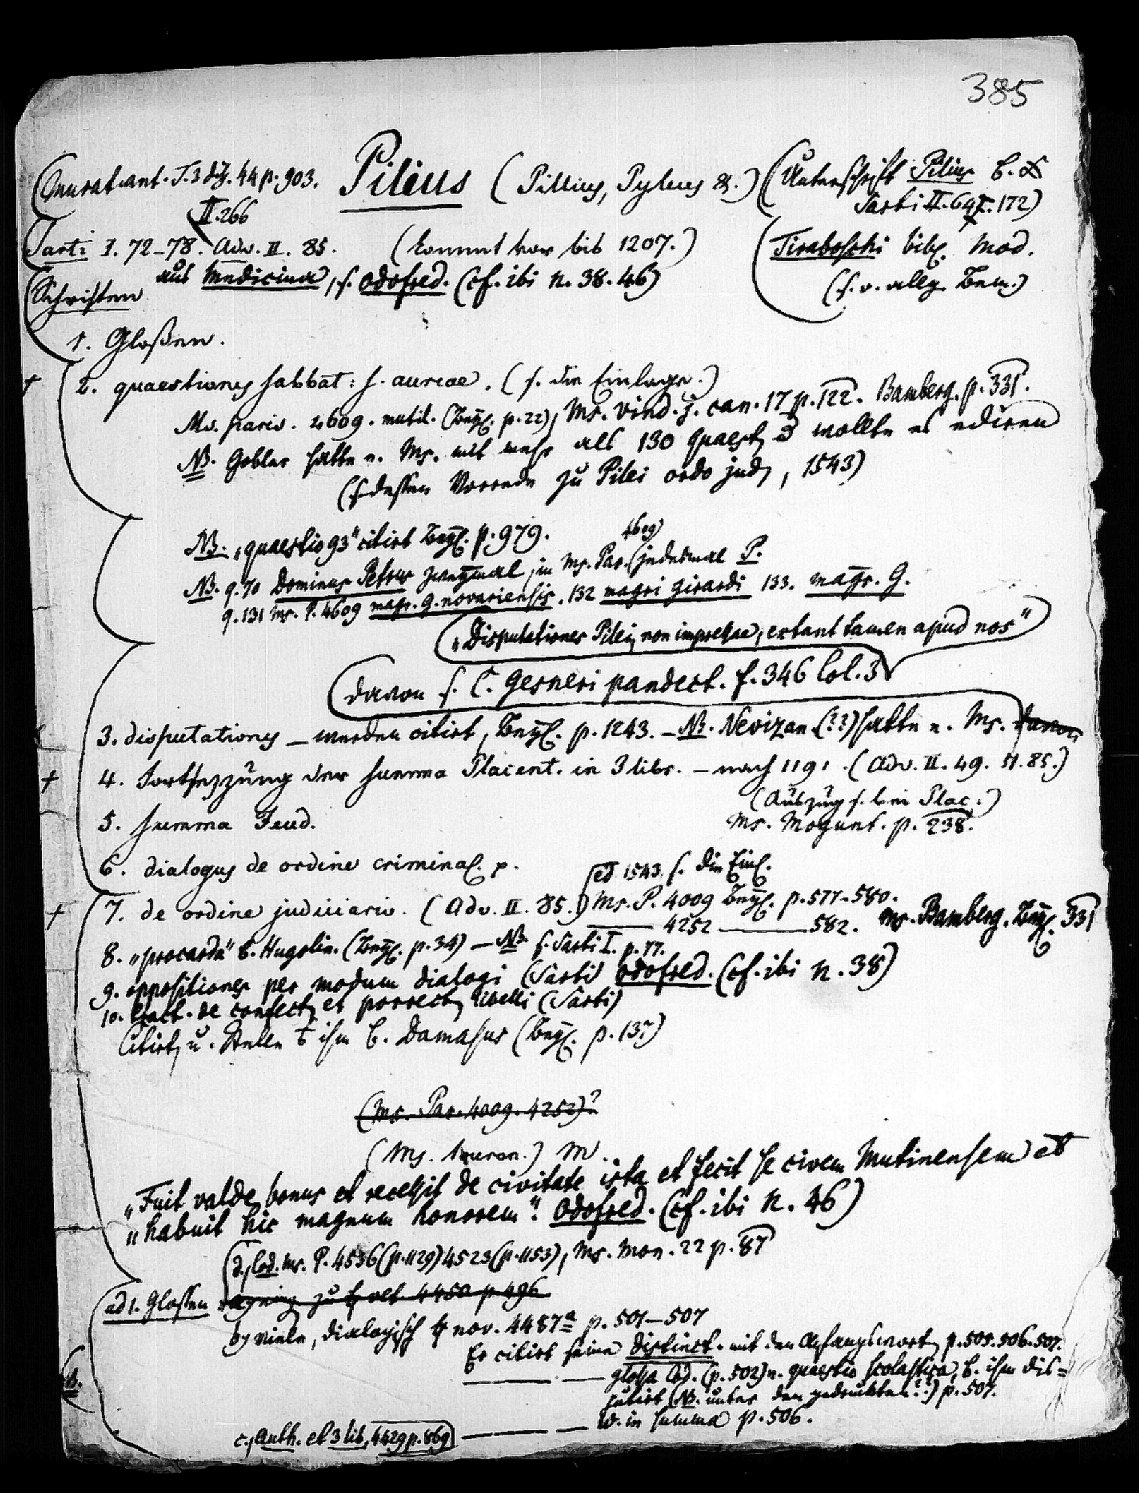 385
(Murat. ant. T. 3 diss. 44 p. 903. Pileus (Pillius, Pyleus &.) (Unterschrift Pilius b. &
II. 266 Sarti II. 64. 172)
Sarti I. 72–78. Adv. II. 85. (kommt vor bis 1207.) (Tiraboschi bibl. Mod.
aus Medicina, s. Odofred. (cf. ibi n. 38. 46) (s. v. allg. Bem.)
Schriften
1. Gloßen.
† 2. quaestiones sabbat: s. aureae. (s. die Einlage.)
Ms. paris. 4609. mutil. (Beyl. p. 22), Ms. vind. j. can. 17 p. 122. Bamberg. p. 331.
NB. Gobler hatte e. Ms. mit mehr als 130 quaest, wollte es ediren
(s. dessen Vorrede zu Pilei ordo jud, 1543)
NB. „quaestio 93" citirt Beyl. p. 979.
NB. q. 70 Dominus Petrus zweymal, im Ms. Par. (4609) jedesmal P.
q. 131 Ms. P. 4609 magr. G. novariensis. 132 magri Girardi 133. magr. G.
„Disputationes Pilei, non impressae, extant tamen apud nos"
davon s. C. Gesneri pandect. f. 346 Col. 3
3. disputationes – werden citirt, Beyl. p. 1243. – NB. Nevizan (??) hatte e. Ms. davon
† 4. Fortsezzung der Summa Placent. in 3 libr. – nach 1191. (Adv. II. 49. 51. 85.)
(Auszug s. bei Plac.)
5. Summa Feud. Ms. Mogunt. p. 238.
6. dialogus de ordine criminal. p.
ed 1543. s. die Einl.
† 7. de ordine judiciario. (Adv. II. 85.) Ms. P. 4009 Beyl. p. 577–580.
4252 ——— 582. Ms. Bamberg. Beyl. 331
8. „procarda" b. Hugolin. (Beyl. p. 34) – NB. s. Sarti I. p. 77.
9. oppositiones per modum dialogi (Sarti) Odofred. (cf. ibi n. 38)
10. tract. de confect, et porrect, libelli (Sarti)
Citirt, u. Stelle ihm b. Damasus (Beyl. p. 137)
(Ms. Par. 4009. 4252)?
(Ms. Tauron.) M.
„Fuit valde bonus et recessit de civitate ista et fecit se civem Mutinensem et
„habuit hic magnum honorem". Odofred. (cf. ibi n. 46)
d. Cod. Ms. P. 4536 (p. 1129) 4523 (p. 1153), Ms. Mon. 22 p. 87
ad 1. Glossen zu vet. 4450 p 496
b, viele, dialogisch nov. 4487a p. 501–507
Er citirt seine distinct. mit den Anfangsworten p. 505. 506. 507.
——— glossa Cod. (p. 502) u. quaestio scolastica, b. ihm dis=
putirt (NB. unter den gedruckten??) p. 507.
NB.
——— in Summa p. 506.
c, Auth. et 3 lib, 4429 p. 869